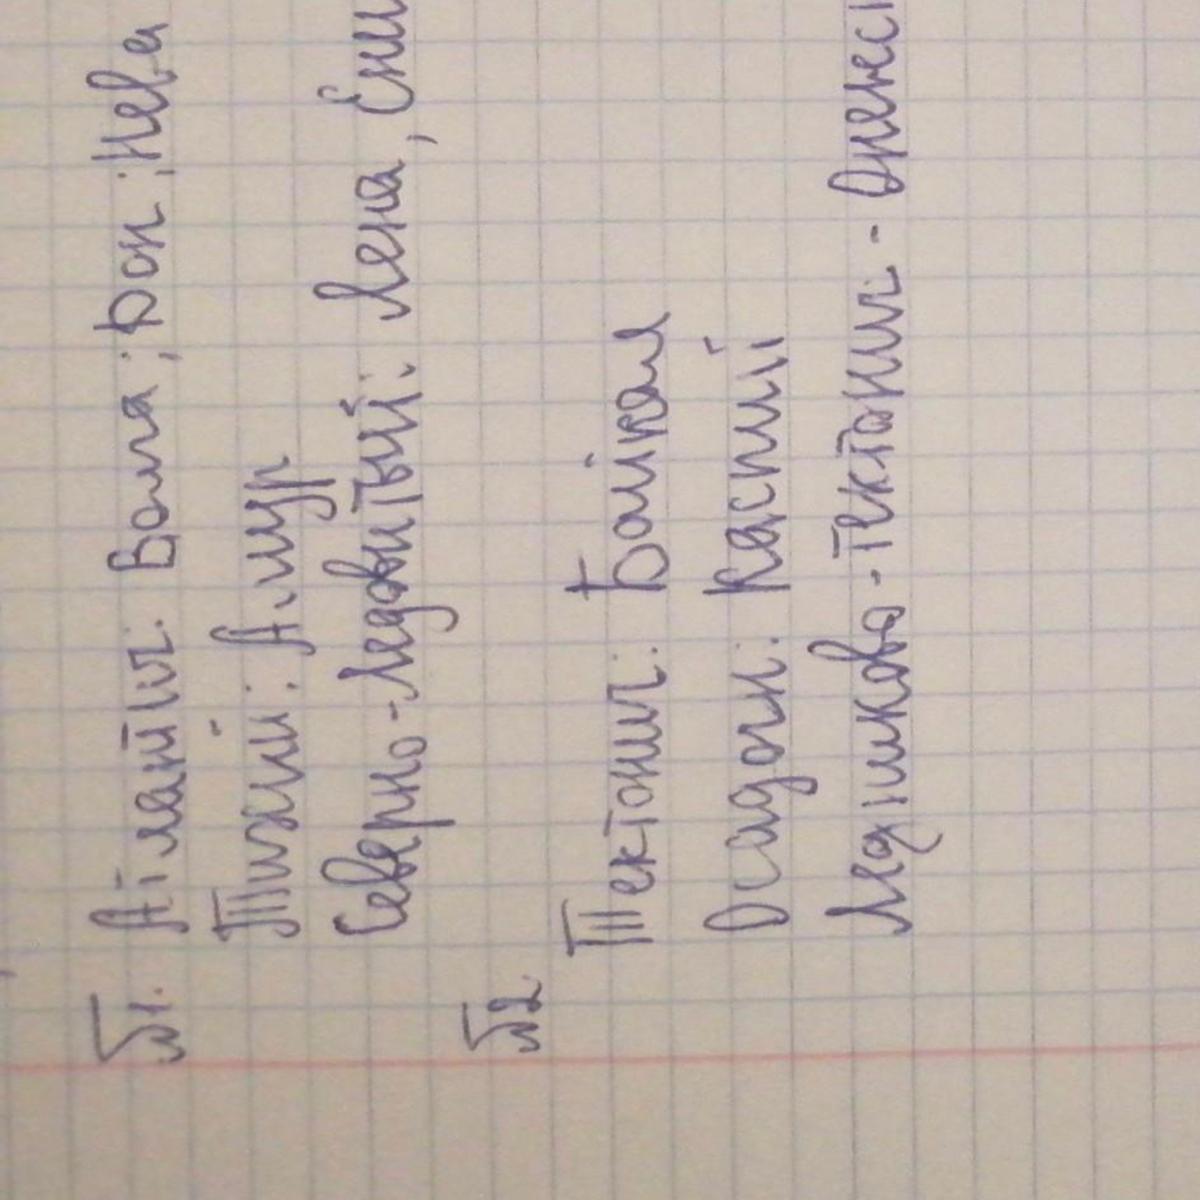 №1. Атлантич: Волга; Дон; Нева
Тихий: Амур
Северно-Ледовитый: Лена, Ени
№2
Тектонич: Байкал
Осадочн: Каспий
Ледниково-тектонич-Онежс